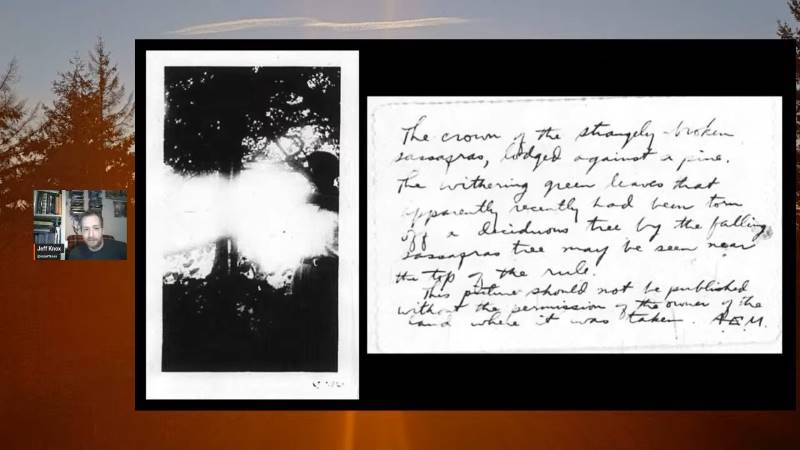 The crown of the strangely-broken
sassagras, lodged against a pine.
The withering green leaves that
apparently recently had been torn
off a deciduous tree by the falling
sassagras tree may be seen near
the top of the rule.
This picture should not be published
without the permission of the owner of the
land where it was taken. A.E.M.
Jeff Knox